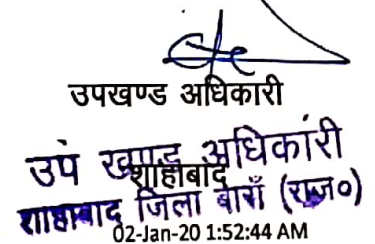 उपखण्ड अधिकारी
उप खण्ड अधिकारी
शाहाबाद
शाहाबाद जिला बाराँ (राज०)
02-Jan-20 1:52:44 AM